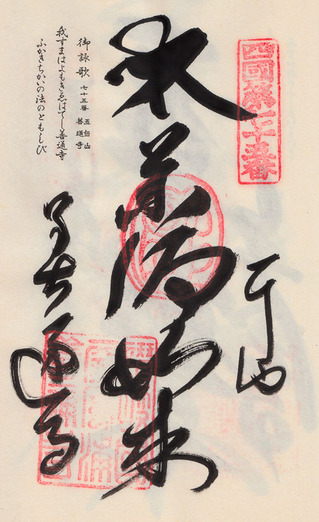 四國第七十五番
奉
薬師如来
善通寺
御詠歌 七十五番 五岳山 善通寺
我すまはよもきゑはてじ善通寺
ふかきちかひの法のともしび